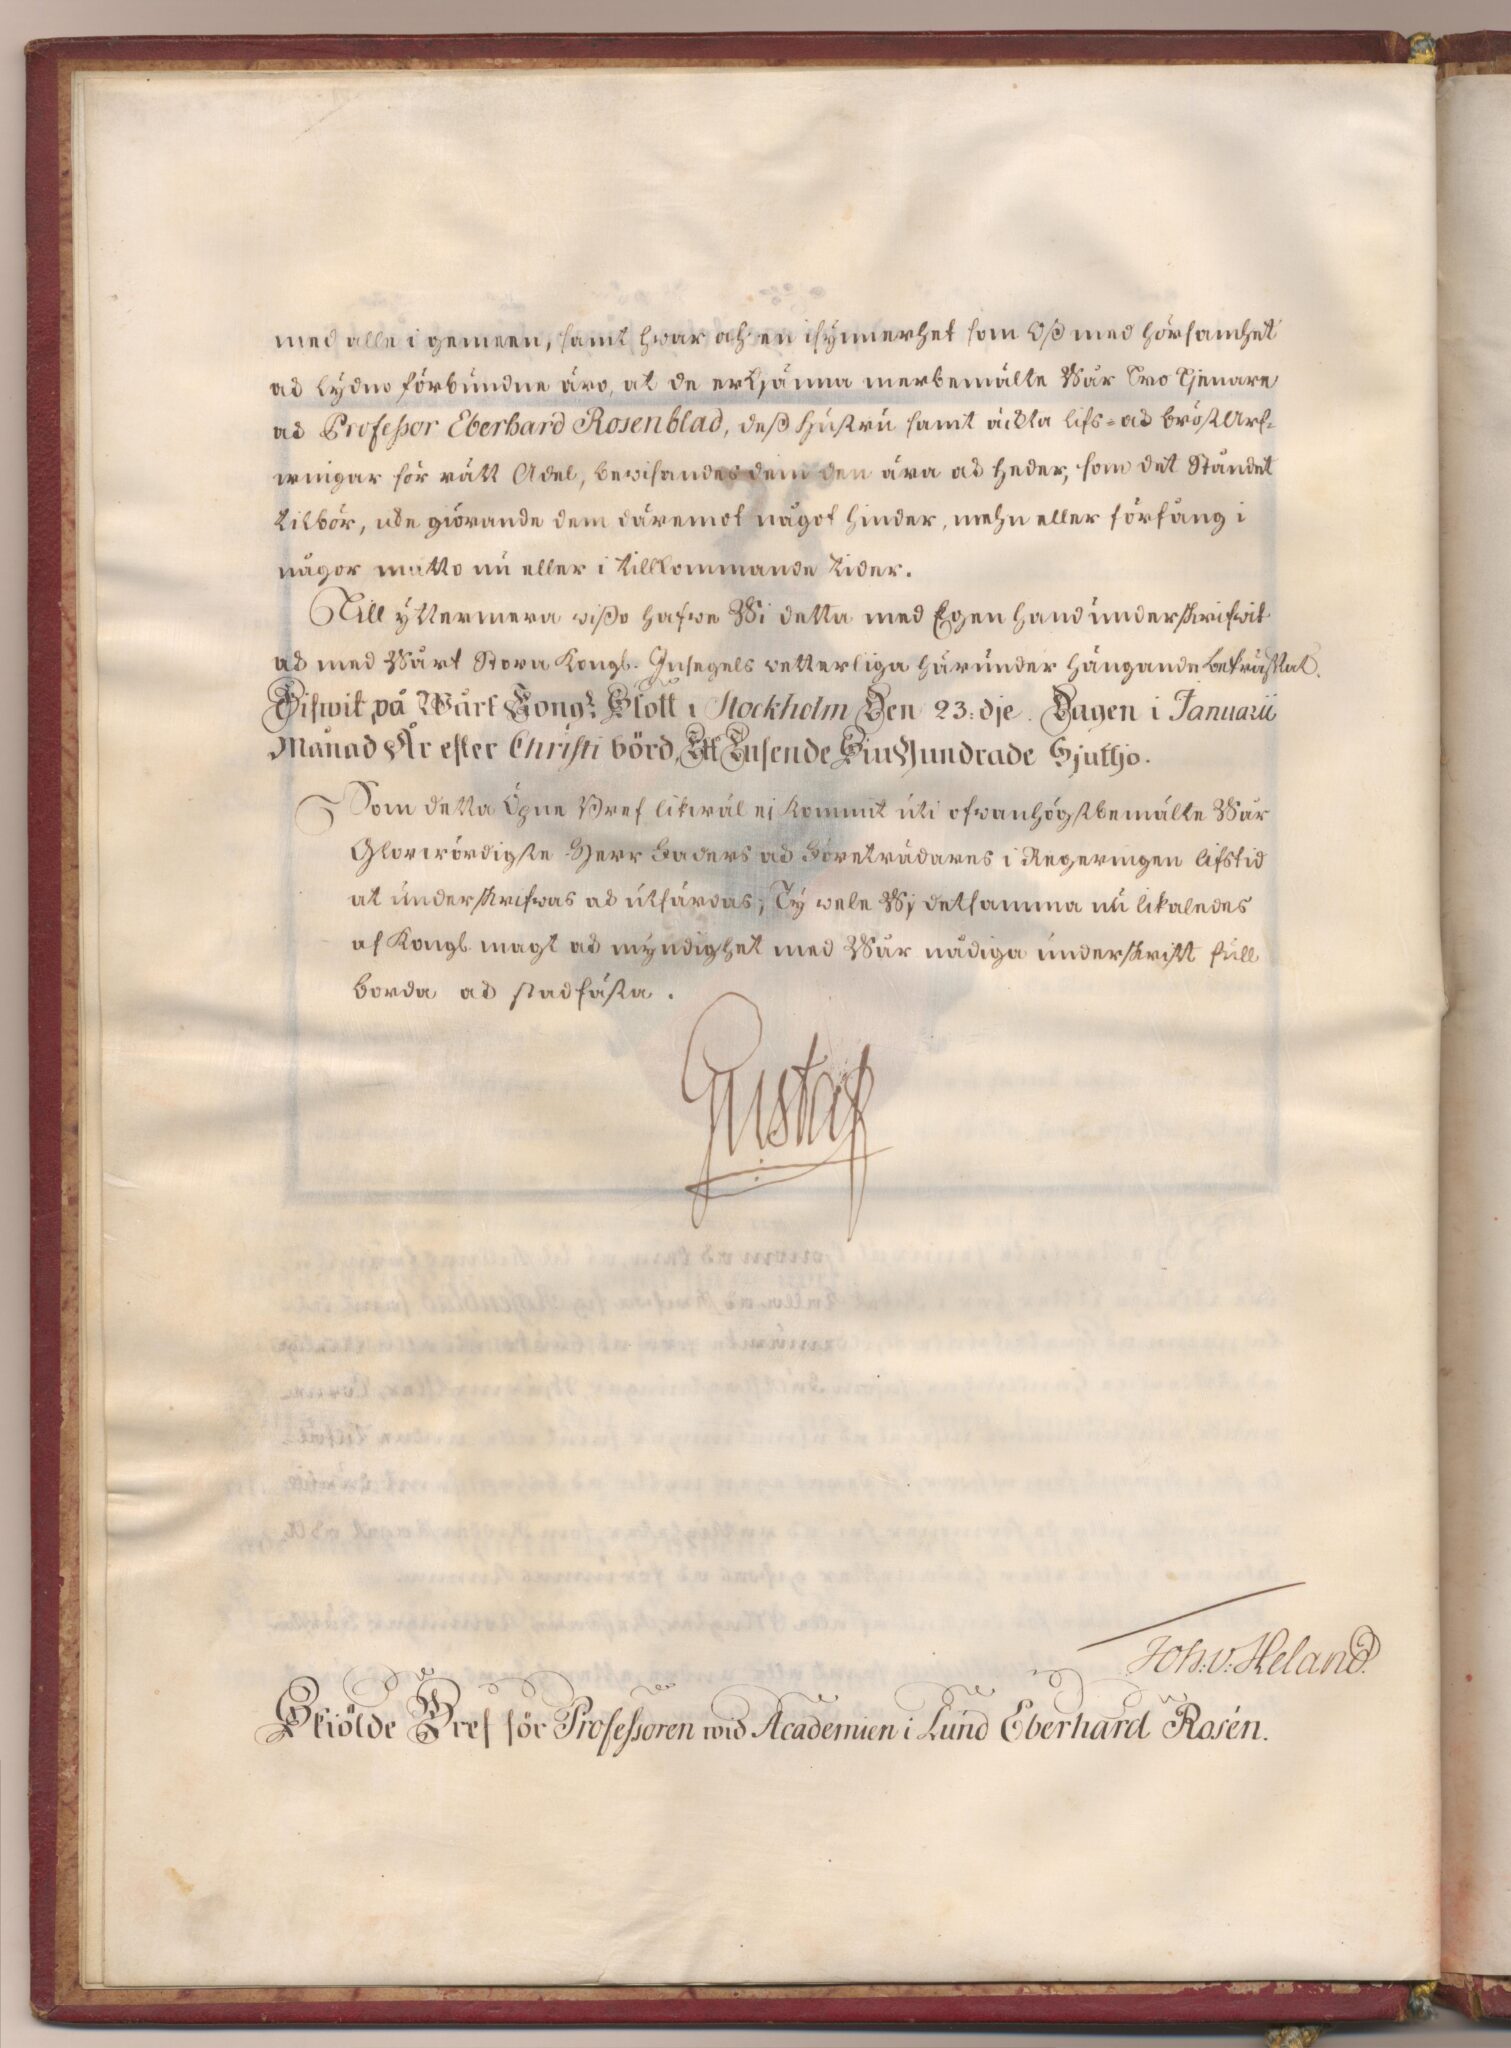 med alle i gemeen, samt hwar och en isynnerhet som Oss med hörsamhet
och lydno förbundne äro, at de erkjänna merbemälte Wår Tro Tjenare
och Professor Eberhard Rosenblad, dess Hustru samt äckta Lifs- och bröstArf-
wingar för rätt Adel, bewisandes dem den ära och heder, som det Ståndet
tilhör, icke giörande dem däremot något hinder, mehn eller förfång i
någor matto nu eller i tillkommande tider.
Till yttermera wisso hafwe Wi detta med Egen hand underskrifwit
och med Wårt Stora Kongl. Insegels wetterliga härunder hängande bekräftat.
Gifwit på Wårt Kongl. Slott i Stockholm Den 23:dje Dagen i Januarii
Månad År efter Christi börd, Ett Tusende Siu Hundrade Sjuttjo.
Som detta Öpne Bref likwäl ej kommit uti ofwanhögstbemälte Wår
Glorwördigste Herr Faders och Företrädares i Regeringen lifstid
at underskrifwas och utfärdas; Ty wele Wj detsamma nu likaledes
af Kongl. magt och myndighet med Wår nådiga underskrift full
borda och stadfästa.
Gustaf
Joh: v: Heland.
Skiölde Bref för Professoren wid Academien i Lund Eberhard Rosén.